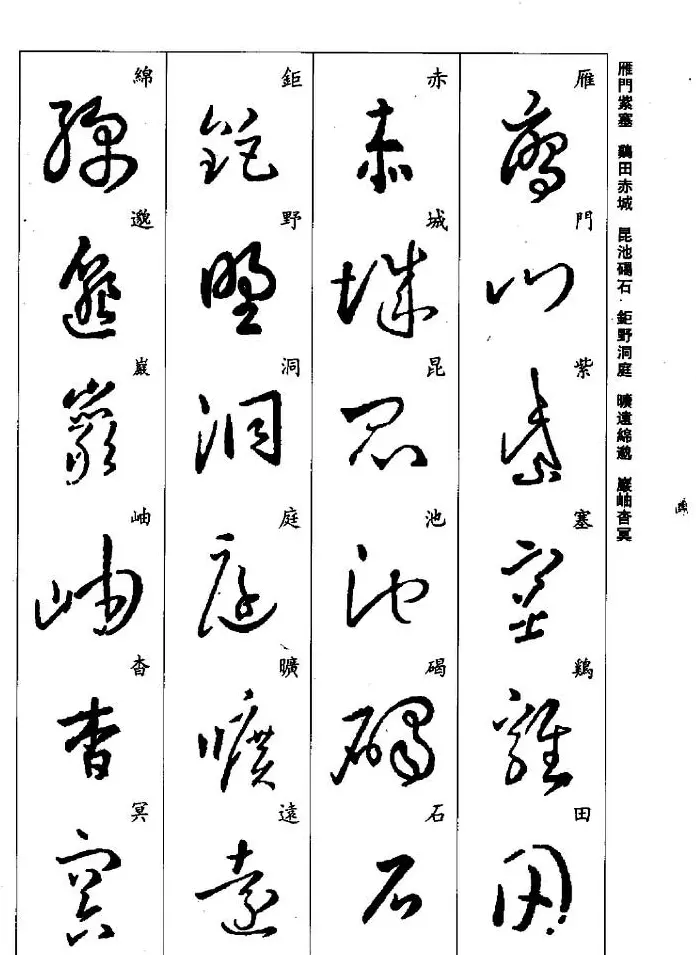 雁門紫塞 鷄田赤城 昆池碣石 鉅野洞庭 曠遠綿邈 巖岫杳冥
雁門紫塞鷄田
赤城昆池碣石
鉅野洞庭曠遠
綿邈巖岫杳冥